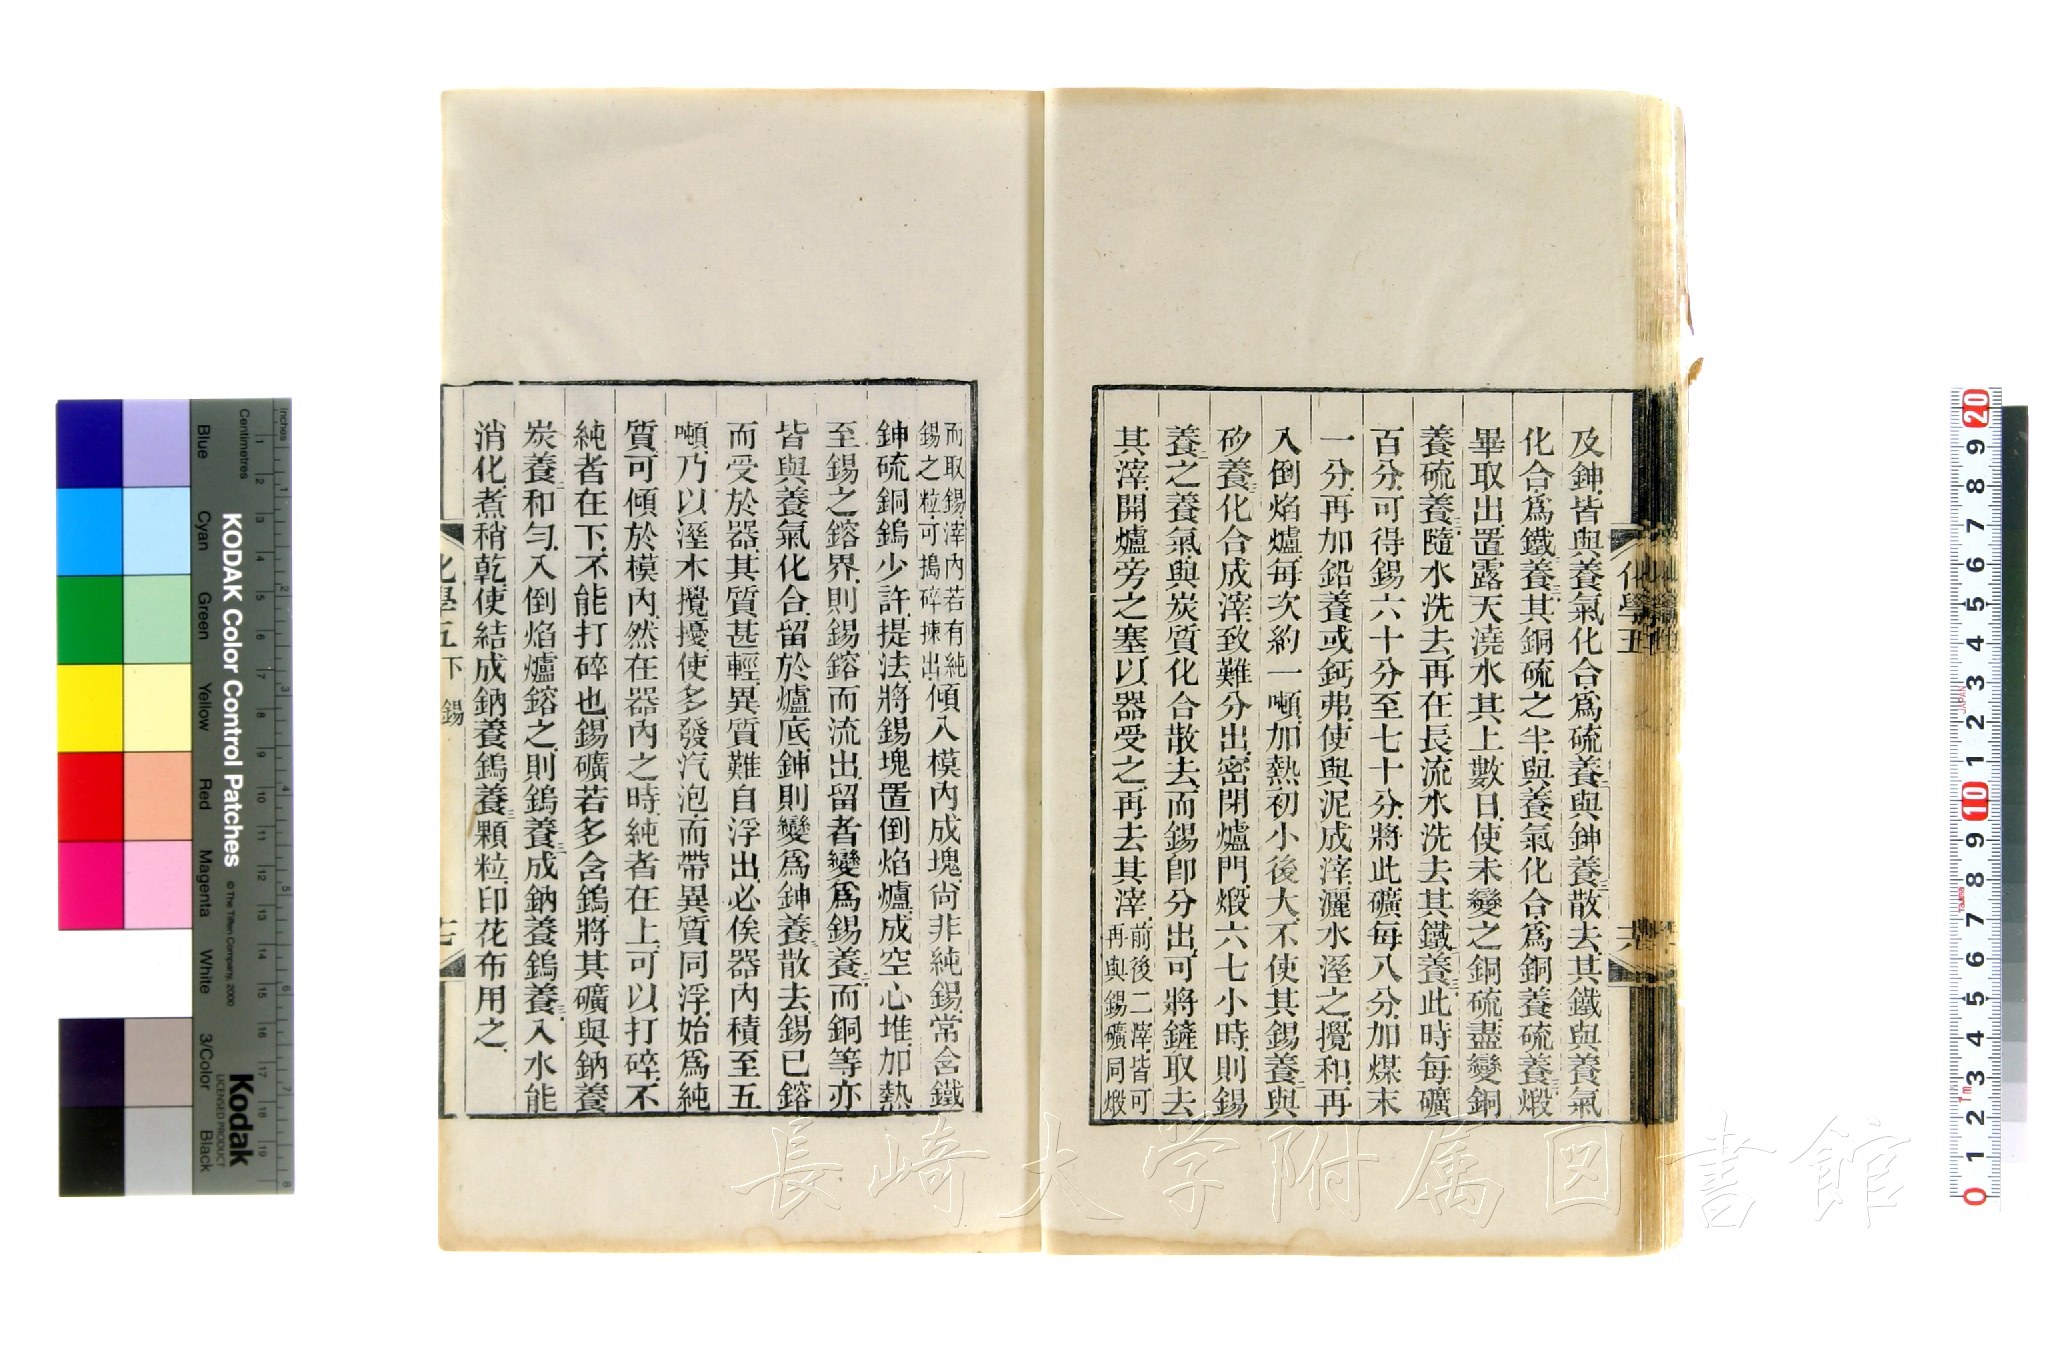 及鉮皆與養氣化合爲硫養與鉮養三散去其鐵與養氣
化合爲鐵養其銅硫之半與養氣化合爲銅養硫養三煅
畢取出置露天澆水其上數日使未變之銅硫盡變銅
養硫養三隨水洗去再在長流水洗去其鐵養此時每礦
百分可得錫六十分至七十分將此礦每八分加煤末
一分再加鉛養或鈣弗使與泥成滓灑水溼之攪和再
入倒焰爐每次約一噸加熱初小後大不使其錫養二與
矽養三化合成滓致難分出密閉爐門煅六七小時則錫
養二之養氣與炭質化合散去而錫卽分出可將鏟取去
其滓開爐旁之塞以器受之再去其滓前後二滓皆可
再與錫礦同煅
化學五
而取錫滓內若有純
錫之粒可搗碎揀出傾入模內成塊尙非純錫常含鐵
鉮硫銅鎢少許提法將錫塊置倒焰爐成空心堆加熱
至錫之鎔界則錫鎔而流出留者變爲錫養二而銅等亦
皆與養氣化合留於爐底鉮則變爲鉮養三散去錫已鎔
而受於器其質甚輕異質難自浮出必俟器內積至五
噸乃以溼木攪擾使多發汽泡而帶異質同浮始爲純
質可傾於模內然在器內之時純者在上可以打碎不
純者在下不能打碎也錫礦若多含鎢將其礦與鈉養
炭養二和勻入倒焰爐鎔之則鎢養三成鈉養鎢養三入水能
消化煮稍乾使結成鈉養鎢養三顆粒印花布用之
化學五 下 錫
Centimetres
inches
KODAK Color Control Patches
© The Tiffen Company, 2000
Kodak
LICENSED PRODUCT
Blue
Cyan
Green
Yellow
Red
Magenta
White
3/Color
Black
長崎大学附属図書館